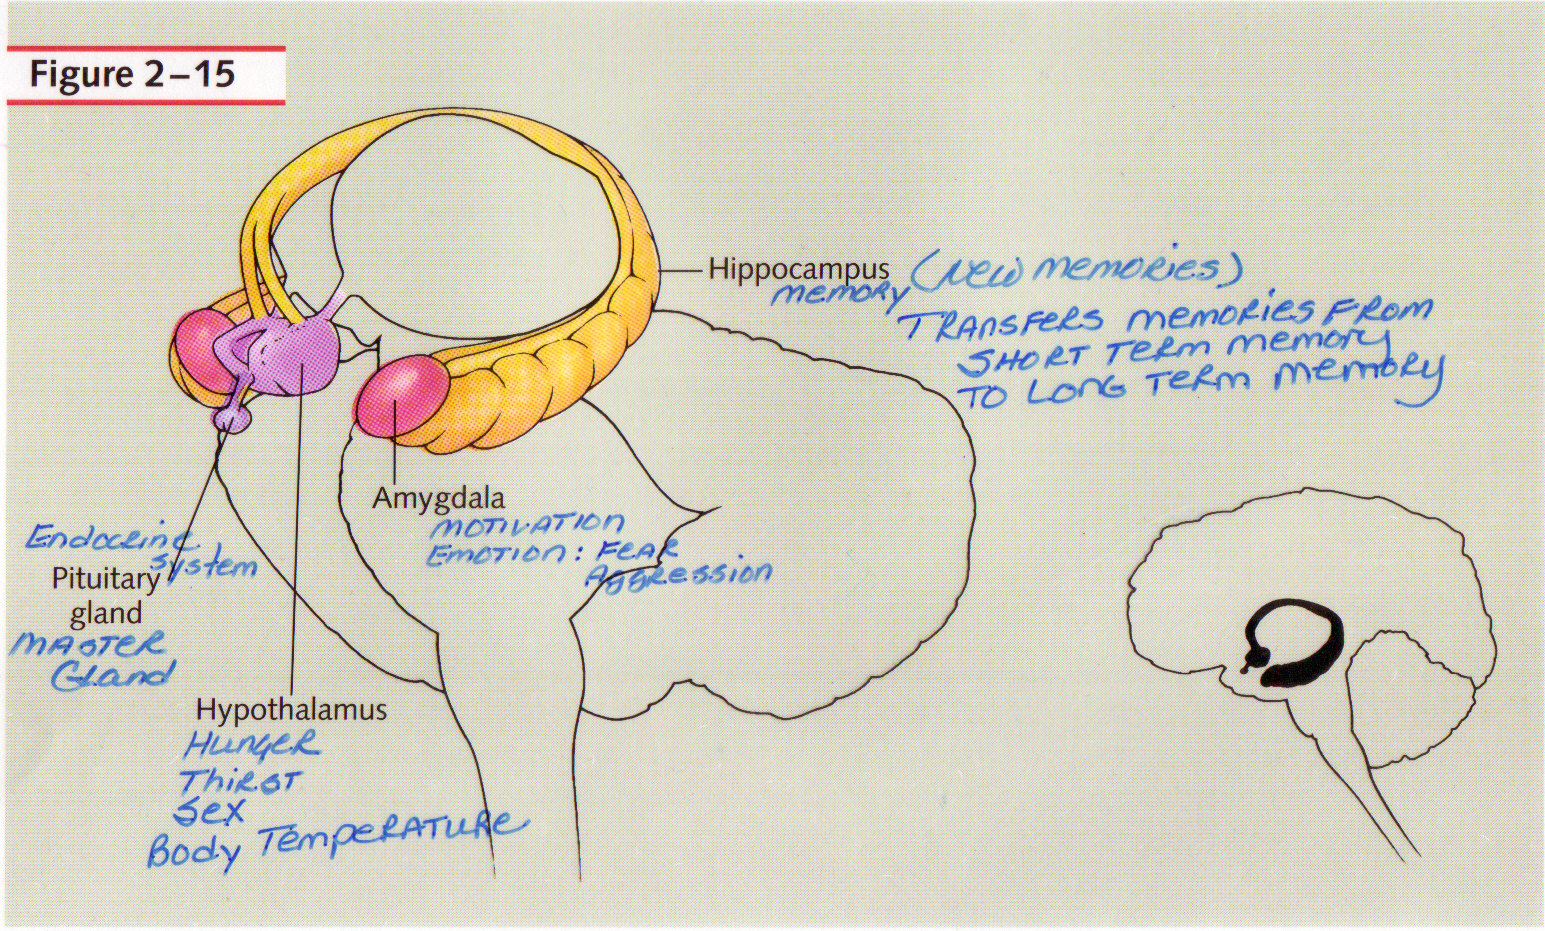 Figure 2–15
Hippocampus (New memories)
memory
Transfers memories from
short term memory
to long term memory
Amygdala
motivation
Emotion: Fear
Aggression
Endocrine
system
Pituitary
gland
master
Gland
Hypothalamus
Hunger
Thirst
Sex
Body Temperature